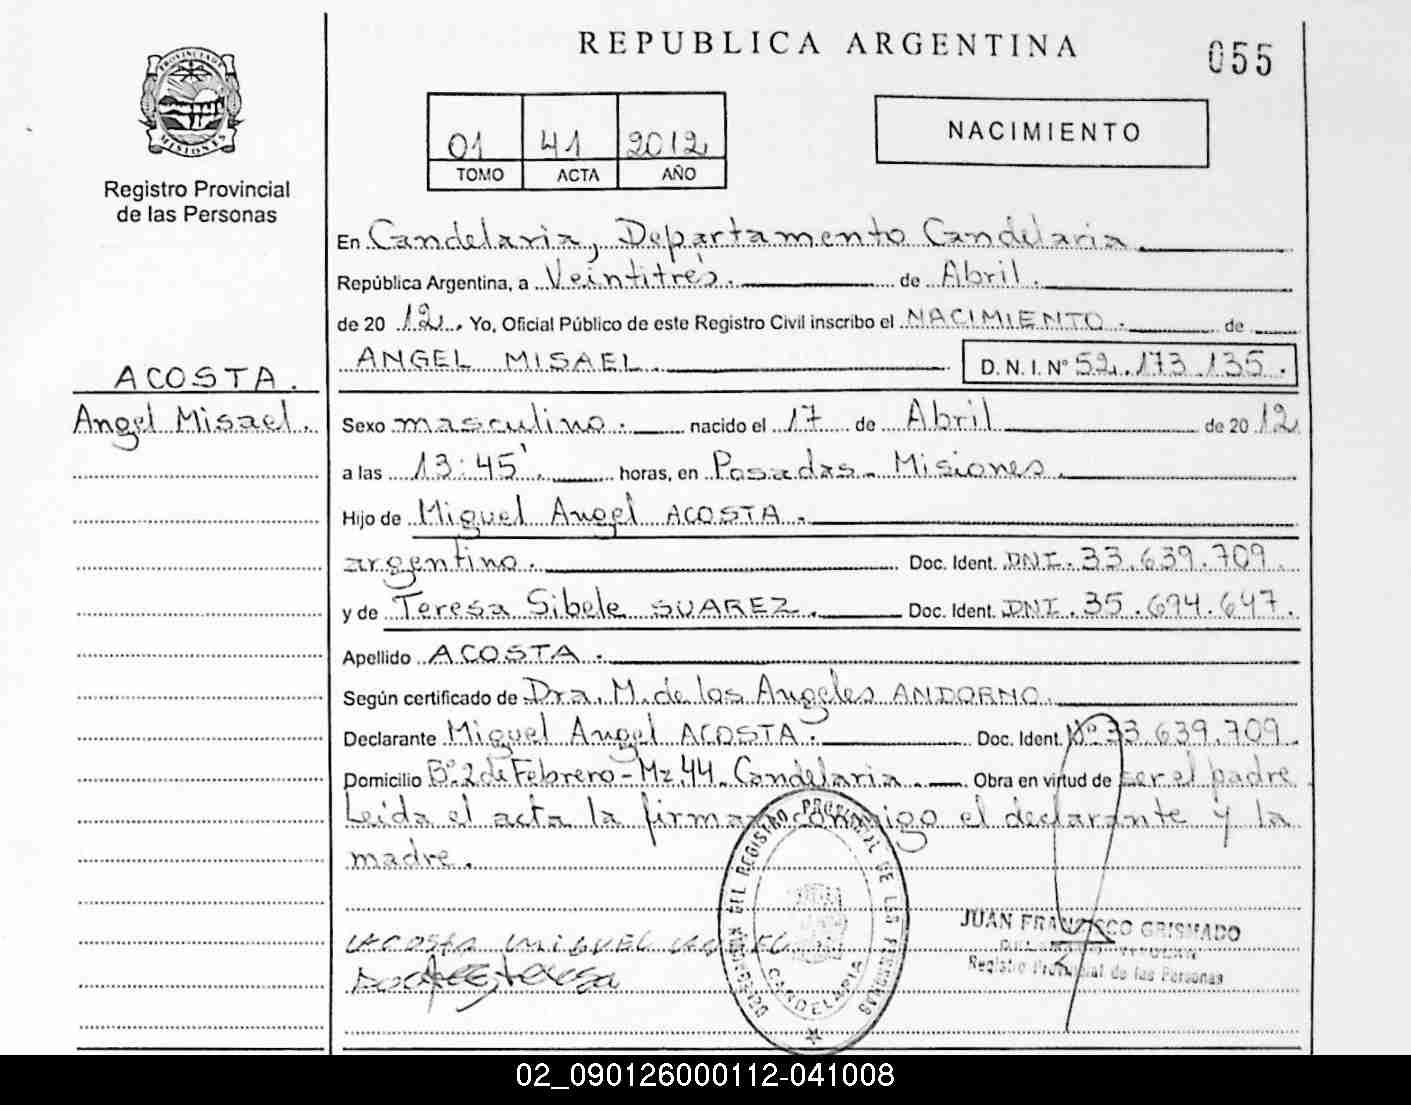 PROVINCIA DE
MISIONES
Registro Provincial
de las Personas
REPUBLICA ARGENTINA
055
01 41 2012
TOMO ACTA AÑO
NACIMIENTO
En Candelaria, Departamento Candelaria
República Argentina, a Veintitrés. de Abril.
de 20 12. Yo, Oficial Público de este Registro Civil inscribo el NACIMIENTO. de
ANGEL MISAEL. D. N. I. Nº 52.173.135.
ACOSTA.
Angel Misael.
Sexo masculino. nacido el 17 de Abril de 20 12
a las 13:45'. horas, en Posadas - Misiones.
Hijo de Miguel Angel ACOSTA.
argentino. Doc. Ident. DNI. 33.639.709.
y de Teresa Sibele SUAREZ. Doc. Ident. DNI. 35.694.647.
Apellido ACOSTA.
Según certificado de Dra. M. de los Angeles ANDORNO.
Declarante Miguel Angel ACOSTA. Doc. Ident. Nº 33.639.709.
Domicilio Bº 2 de Febrero - Mz. 44. Candelaria. Obra en virtud de ser el padre
Leida el acta la firman conmigo el declarante y la
madre.
DELEGACION DEL REGISTRO PROVINCIAL DE LAS PERSONAS
CANDELARIA
ACOSTA MIGUEL ANGEL
JUAN FRANCISCO GRISMADO
Registro Provincial de las Personas
02_090126000112-041008